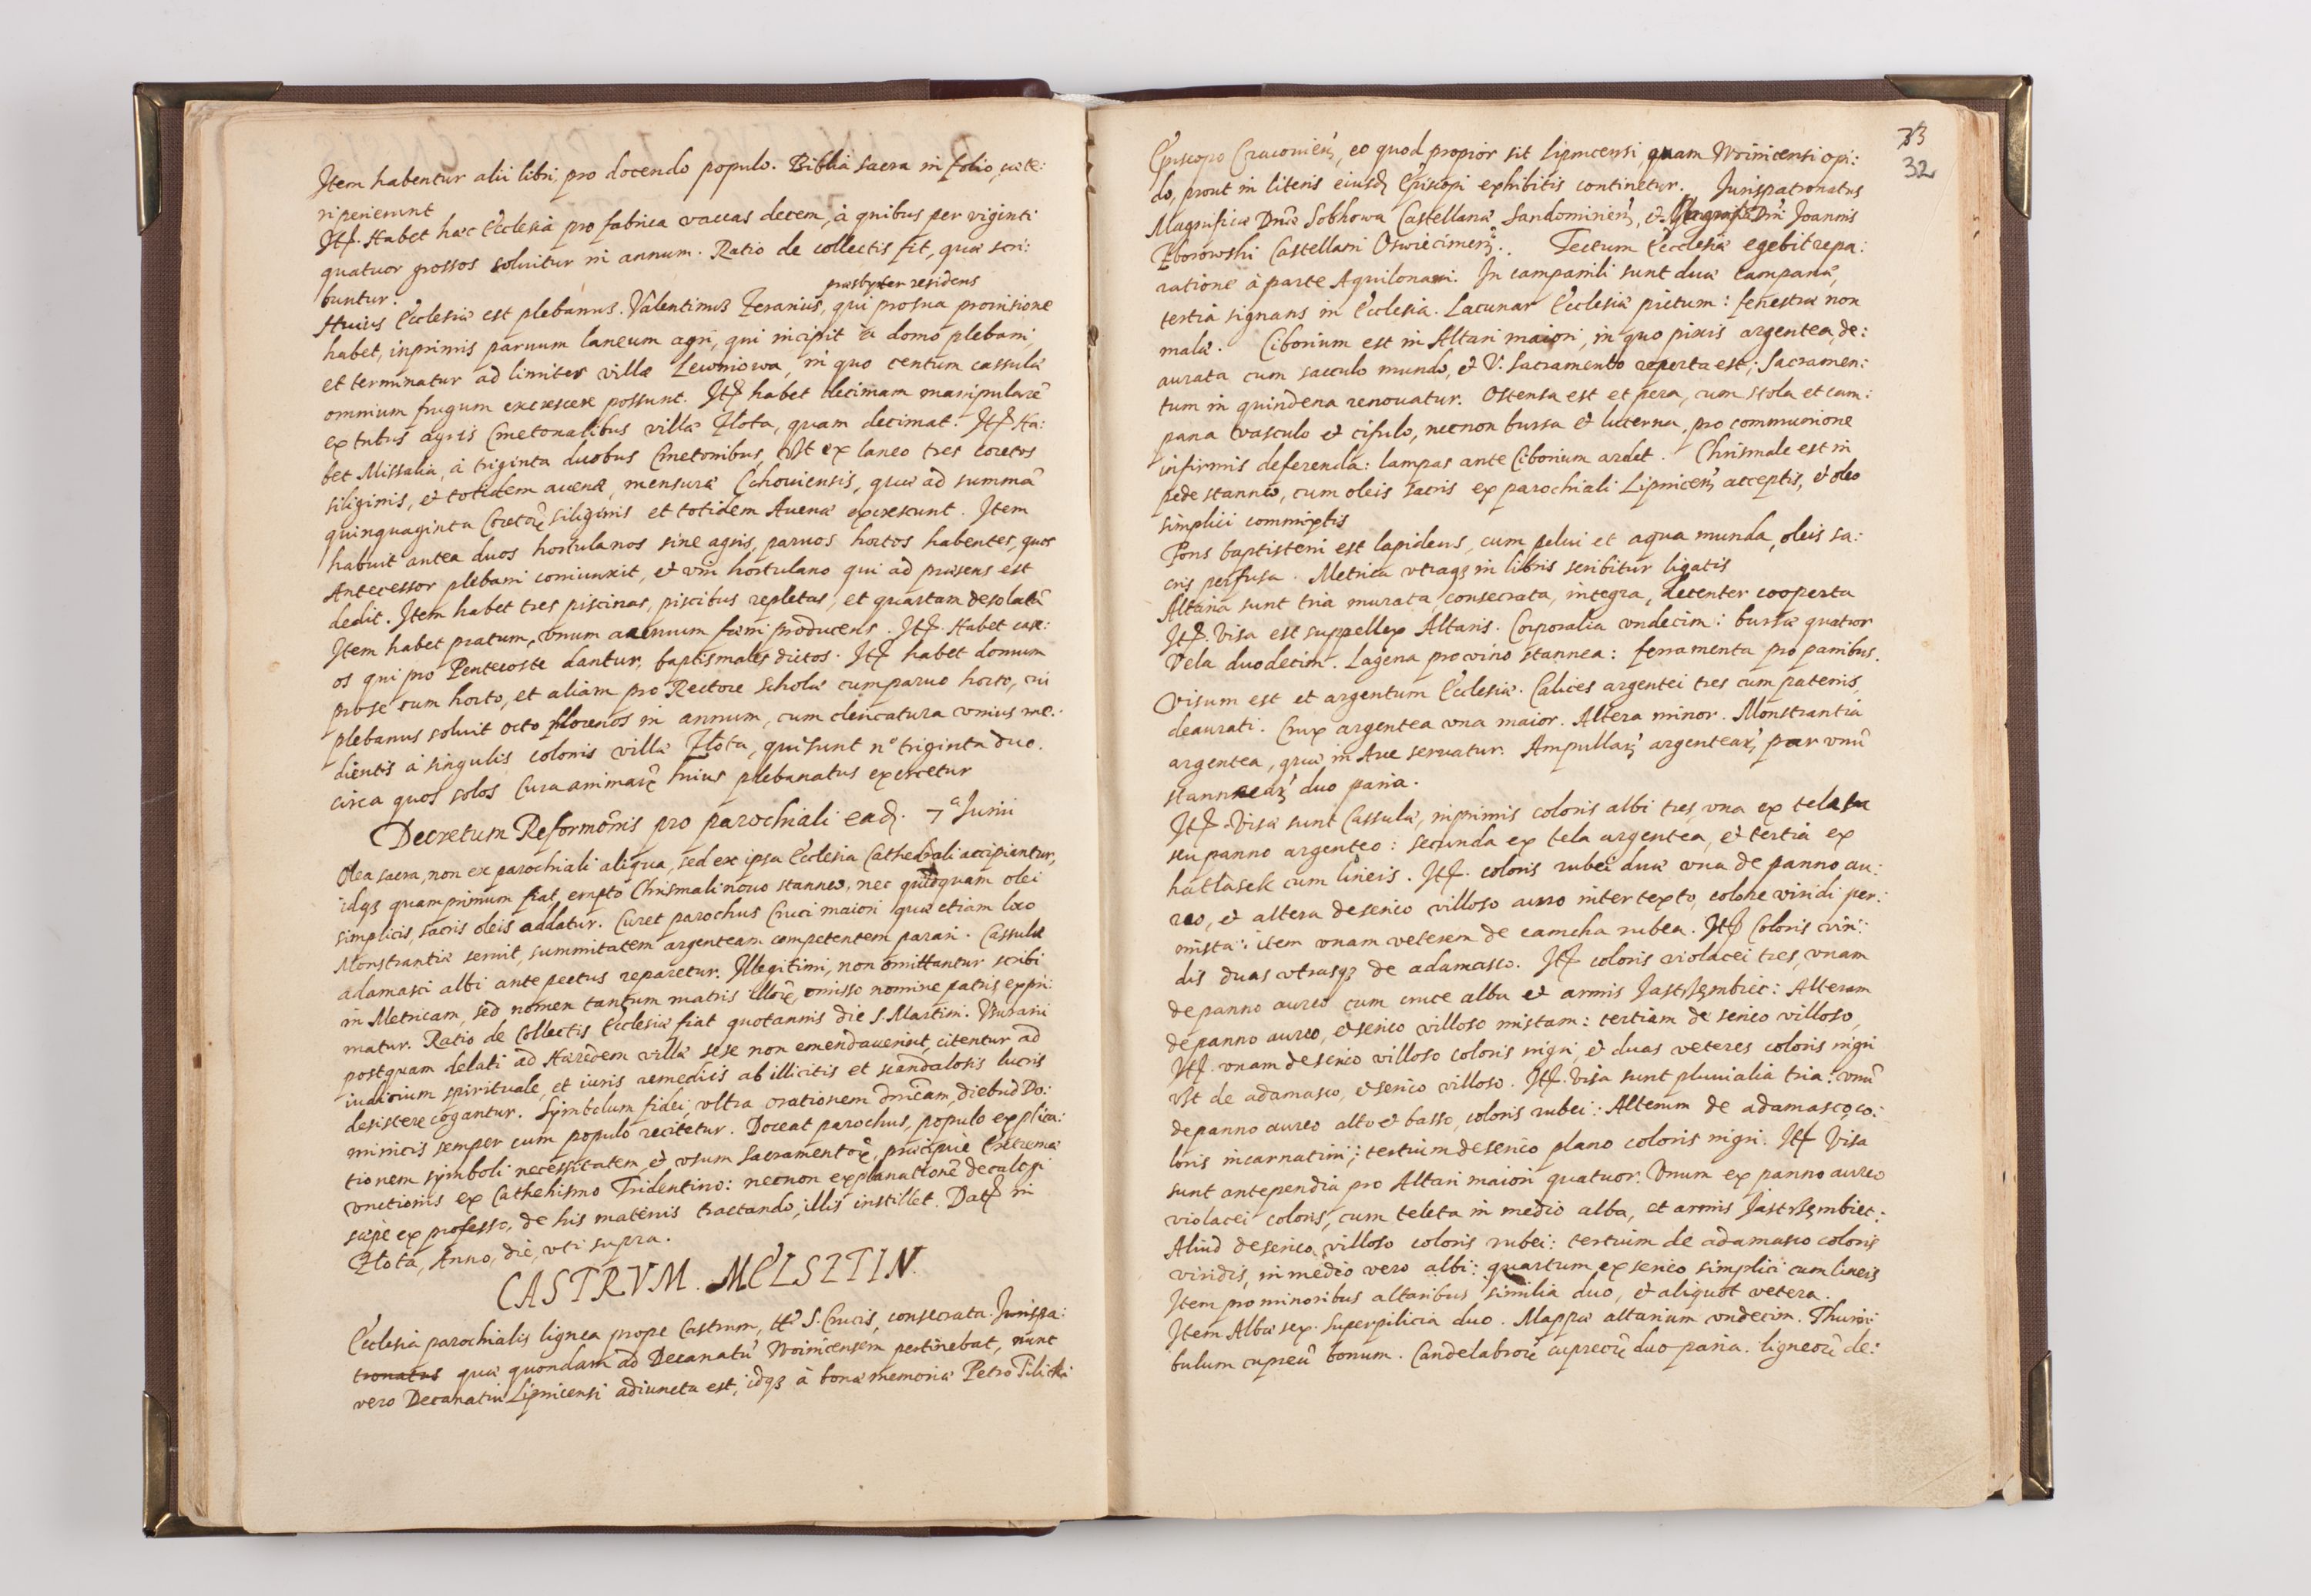 Item habentur alii libri, pro docendo populo. Biblia sacra in folio, cæte:
ri perierunt
Itē. Habet hæc Ecclesia pro fabrica vaccas decem, à quibus per viginti
quatuor grossos soluitur in annum. Ratio de collectis fit, quæ scri:
buntur.
præsbyter residens
Huius Ecclesiæ est plebanus. Valentinus Zeranius, qui pro sua prouisione
habet, inprimis paruum laneum agri, qui incipit à domo plebani,
et terminatur ad limites villæ Lewniowa, in quo centum cassulæ
omnium frugum excrescere possunt. Itē habet decimam manipularē
ex totus agris Cmetonalibus villæ Zlota, quam decimat. Itē Ha:
bet Missalia, à triginta duobus Cmetonibus, vt ex laneo tres coretos
siliginis, et totidem auenæ, mensuræ Cchouiensis, quæ ad summā
quinquaginta Coretorē siliginis et totidem Auenæ excrescunt. Item
habuit antea duos hortulanos sine agris, paruos hortos habentes, quos
Antecessor plebani coniunxit, et vni hortulano qui ad præsens est
dedit. Item habet tres piscinas, piscibus repletas, et quartam desolatā
Item habet pratum, vnum aceruum fœni producens. Itē. Habet case:
os qui pro Pentecoste dantur, baptismales dictos. Itē habet domum
pro se cum horto, et aliam pro Rectore scholæ cum paruo horto, cui
plebanus soluit octo florenos in annum, cum clericatura vnius me:
dientis à singulis colonis villæ Zlota, qui sunt nº triginta duo.
circa quos solos Cura animarē huius plebanatus exercetur
Decretum Reformōnis pro parochiali eadē. 7ª Junii
Olea sacra, non ex parochiali aliqua, sed ex ipsa Ecclesia Cathedrali accipiantur,
idq̃ quamprimum fiat, empto Chrismali nouo stanneo, nec quidquam olei
simplicis, sacris oleis addatur. Curet parochus Cruci maiori quæ etiam loco
Monstrantiæ seruit, summitatem argenteam competentem parari. Cassula
adamasci albi ante pectus reparetur. Illegitimi, non omittantur scribi
in Metricam, sed nomen tantum matris illorē, omisso nomine patris expri:
matur. Ratio de Collectis Ecclesiæ fiat quotannis die S. Martini. Vsurarii
postquam delati ad Hæredem villæ sese non emendauerint, citentur ad
iudicium spirituale, et iuris remediis ab illicitis et scandalosis lucris
desistere cogantur. Symbolum fidei, vltra orationem dnīcam, diebus Do:
minicis semper cum populo recitetur. Doceat parochus, populo explica:
tionem symboli necessitatem, et vsum Sacramentorē, præcipuè Extremæ
vnctionis ex Cathehismo Tridentino: necnon explanationē decalogi
sæpè ex professo, de his materiis tractando, illis instillet. Datē in
Zlota, Anno, die, vti supra.
CASTRVM. MELSZTIN.
Ecclesia parochialis lignea prope Castrum, tt° S. Crucis, consecrata. Jurispa:
tronatus quæ quondam ad Decanatū Woinicensem pertinebat, nunc
vero Decanatui Lipnicensi adiuncta est, idq̃ à bonæ memoriæ Petro Tilicki
33
32
Episcopo Cracouieñ, eo quod propior sit Lipnicensi, quam Woinicensi opi:
do, prout in literis eiusdē Episcopi exhibitis continetur. Jurispatronatus
Magnificæ Dnæ Sobkowa Castellanæ Sandomirieñ, et Magnifici Dni Joannis
Zborowski Castellani Oswiecimeñ. Tectum Ecclesiæ egebit repa:
ratione à parte Aquilonari. In campanili sunt duæ Campanæ,
tertia signans in Ecclesia. Lacunar Ecclesiæ pictum: fenestræ non
malæ. Ciborium est in Altari maiori, in quo pixis argentea, de:
aurata cum sacculo mundo, et V. Sacramento reperta est; Sacramen:
tum in quindena renouatur. Ostensa est et pera, cum stola et cam:
pana vasculo et cifulo, necnon bursa et luterna, pro communione
infirmis deferenda: lampas ante Ciborium ardet. Chrismale est in
pede stanneo, cum oleis sacris ex parochiali Lipniceñ acceptis, et oleo
simplici commixtis
Fons baptisteri est lapideus, cum pelui et aqua munda, oleis sa:
cris perfusa. Metrica vtraq̃ in libris scribitur ligatis
Altaria sunt tria murata, consecrata, integra, decenter cooperta
Itē. Visa est suppellex Altaris. Corporalia vndecim: bursæ quatuor
Vela duodecim. Lagena pro vino stannea: ferramenta pro panibus.
Visum est et argentum Ecclesiæ. Calices argentei tres cum patenis,
deaurati. Crux argentea vna maior. Altera minor. Monstrantia
argentea, quæ in Arce seruatur. Ampullarē argentearē par vnū
stannearē duo paria.
Itē. Visæ sunt Cassulæ, inprimis coloris albi tres, vna ex teleta
seu panno argenteo: secunda ex tela argentea, et tertia ex
hatlasek cum lineis. Itē. coloris rubei duæ vna de panno au:
reo, et altera de serico villoso auro intertexto, colore viridi per:
mista: item vnam veterem de camcha rubea. Itē Coloris viri:
dis duas vtrasq̃ de adamasco. Itē coloris violacei tres, vnam
de panno aureo cum cruce alba et armis Jastrzembiec: Alteram
de panno aureo, et serico villoso mistam: tertiam de serico villoso,
Itē. vnam de serico villoso coloris nigri, et duas veteres coloris nigri
vt de adamasco, et serico villoso. Itē. Visa sunt pluuialia tria: vnū
de panno aureo alto et basso, coloris rubei: Alterum de adamasco, co:
loris incarnatini; tertium de serico plano coloris nigri. Itē Visa
sunt antependia pro Altari maiori quatuor. Vnum ex panno aureo
violacei coloris, cum teleta in medio alba, et armis Jastrzembiec:
Aliud de serico villoso coloris rubei: tertium de adamasco coloris
viridis, in medio vero albi: quartum ex serico simplici cum lineis
Item pro minoribus altaribus similia duo, et aliquot vetera.
Item Albæ sex. Superpilicia duo. Mappæ altarium vndecim. Thuri:
bulum cupreū bonum. Candelabrorē cupreorē duo paria. ligneorē de: